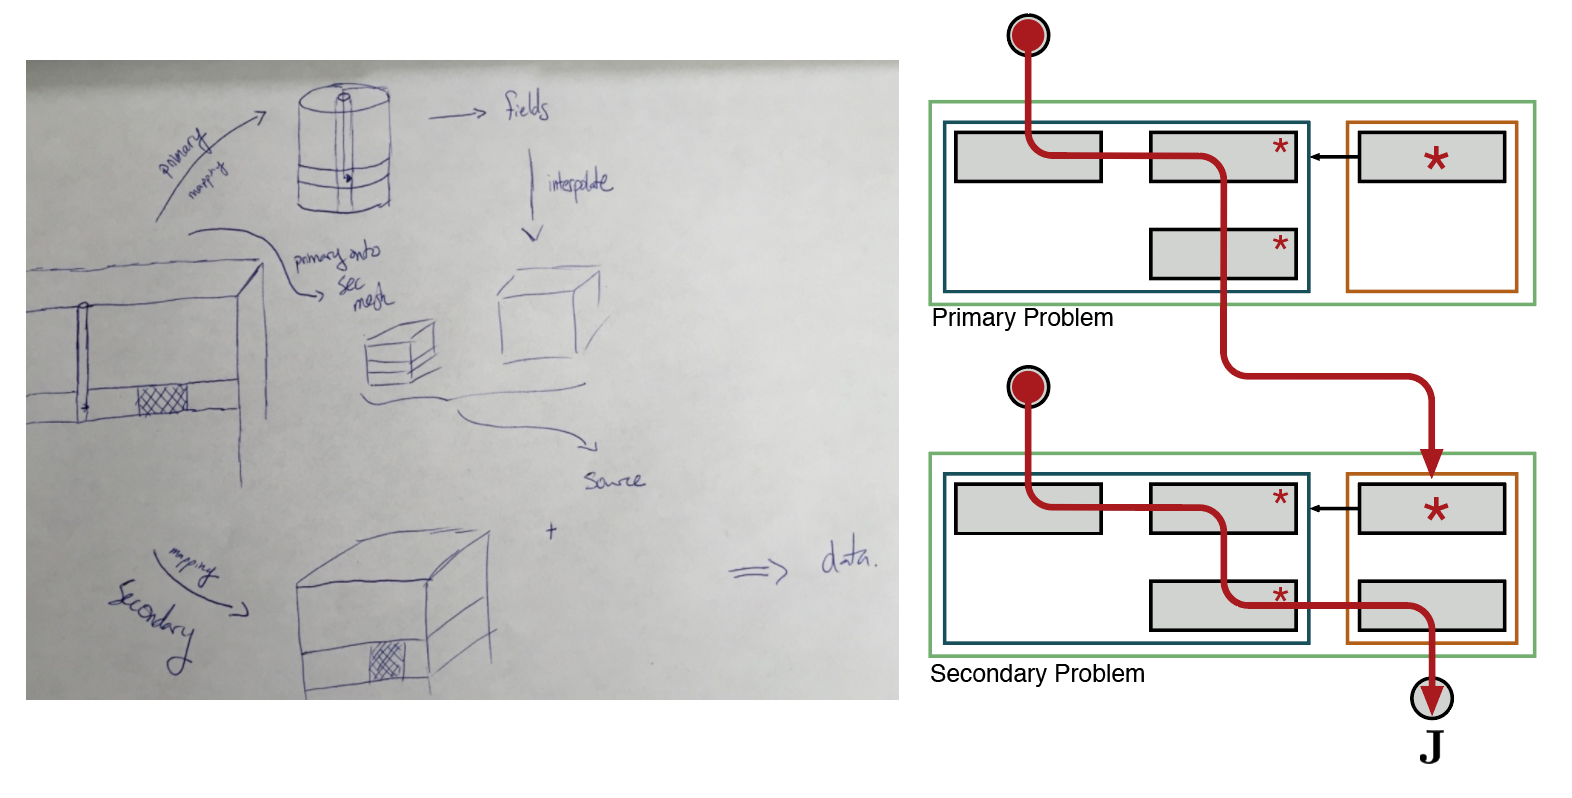 primary
mapping
fields
interpolate
primary onto
sec
mesh
Source
mapping
Secondary
+
⇒ data.
*
*
*
Primary Problem
*
*
*
Secondary Problem
J